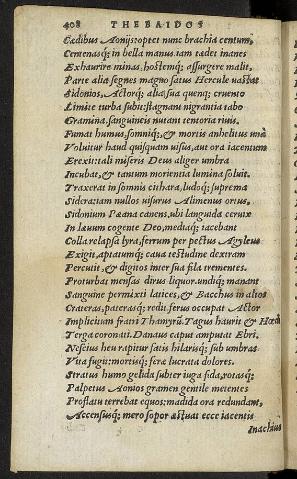 408 THEBAIDOS
Cædibus Aonijs: optet nunc brachia centum,
Centenasq; in bella manus. iam tædet inanes
Exhaurire minas, hostemq; assurgere malit.
Parte alia segnes magno satus Hercule uastat
Sidonios, Actorq; alia, sua quenq; cruento
Limite turba subit: stagnant nigrantia tabo
Gramina, sanguineis nutant tentoria riuis.
Fumat humus, somniq;, & mortis anhelitus una
Voluitur haud quisquam uisus, aut ora iacentum
Erexit: tali miseris Deus aliger umbra
Incubat, & tantum morientia lumina soluit.
Traxerat in somnis cithara, ludoq; suprema
Sidera: iam nullos uisurus Alimenus ortus,
Sidonium Pæana canens, ubi languida ceruix
In læuum cogente Deo, mediaq; iacebant
Collarelapsa lyra, ferrum per pectus Agylleus
Exigit, aptatumq; caua testudine dextram
Percutit, & digitos inter sua fila trementes.
Proturbat mensas dirus liquor. undiq; manant
Sanguine permixti latices, & Bacchus in altos
Crateras, paterasq; redit. ferus occupat Actor
Implicitum fratri Thamyrũ. Tagus haurit &
Terga coronati. Danaus caput amputat Ebri,
Nescius heu rapitur fatis hilarisq; sub umbras
Vita fugit: mortisq; feræ lucrata dolores.
Stratus humo gelida subter iuga fida, rotasq;
Palpetus Aonios gramen gentile metentes
Proflatu terrebat equos: madida ora redundant,
Accensusq; mero sopor æstuat ecce iacentis
Inachius